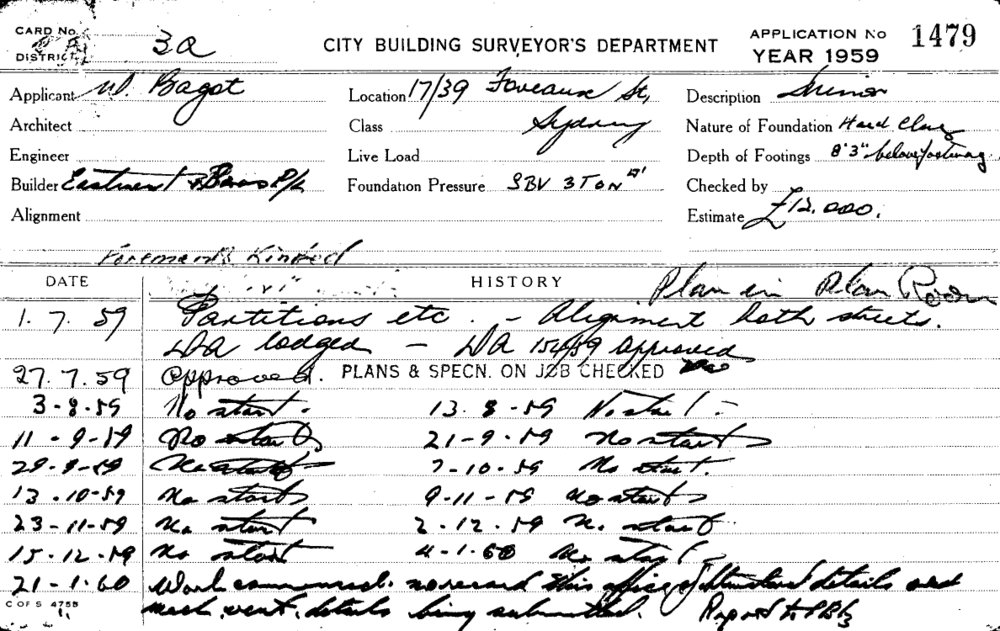 CARD No.
DISTRICT 3a CITY BUILDING SURVEYOR'S DEPARTMENT APPLICATION No 1479
YEAR 1959
Applicant W. Bagot Location 17/39 Foveaux St, Description Minor
Architect Class Sydney Nature of Foundation Hard Clay
Engineer Live Load Depth of Footings 8'3" below footway
Builder Eastment & Sons P/L Foundation Pressure SBV 3 TON
Alignment Checked by
Estimate £12.000.
Foreman Kindred
DATE HISTORY Plan in Plan Room
1.7.59 Partitions etc. - Alignment both streets.
DA lodged - DA 154/59 approved
27.7.59 Approved. PLANS & SPECN. ON JOB CHECKED
3-8-59 No start - 13.8-59 No start -
11-9-59 No start 21-9-59 No start
29-9-59 No start 7-10-59 No start.
13.10-59 No start 9-11-59 No start
23-11-59 No start 2-12.59 No start
15-12.59 No start 4-1-60 No start
21-1-60 Work commenced. no record this office of structural details and
C OF S 4755 mech. vent. details being submitted. Report to